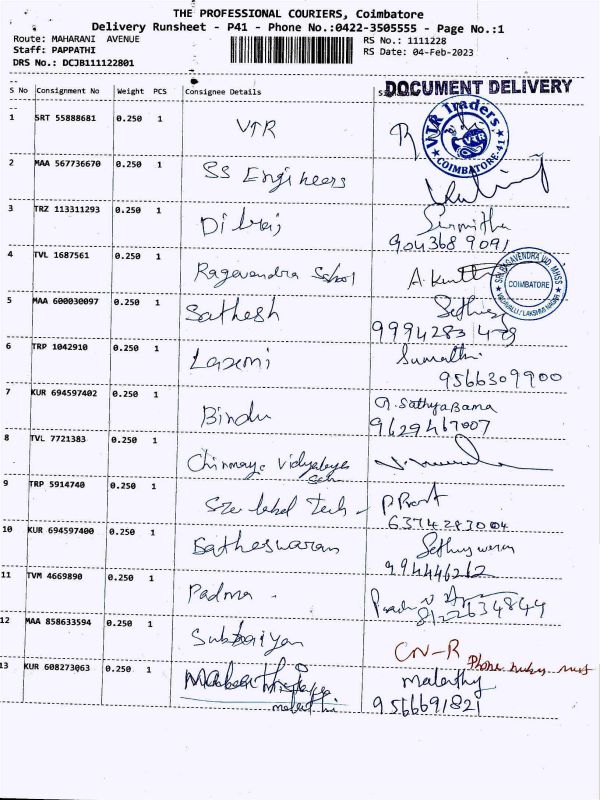 THE PROFESSIONAL COURIERS, Coimbatore
Delivery Runsheet - P41 - Phone No.:0422-3505555 - Page No.:1
Route: MAHARANI AVENUE
RS No.: 1111228
Staff: PAPPATHI
RS Date: 04-Feb-2023
DRS No.: DCJB111122801
DOCUMENT DELIVERY
S No Consignment No Weight PCS Consignee Details
1 SRT 55888681 0.250 1 VTR
VTR Traders
VTR
COIMBATORE-41
2 MAA 567736670 0.250 1 SS Engineers
3 TRZ 113311293 0.250 1
904368 9091
4 TVL 1687561 0.250 1 Ragavendra School
COIMBATORE
5 MAA 600030097 0.250 1 Sathesh
6 TRP 1042910 0.250 1 Laxmi Sumathi
9566309900
7 KUR 694597402 0.250 1 Bindu G. Sathyabama
9629467007
8 TVL 7721383 0.250 1
9 TRP 5914740 0.250 1 label Tech
6374283004
10 KUR 694597400 0.250 1 Satheswaran
994446212
11 TVM 4669890 0.250 1 Padma
12 MAA 858633594 0.250 1 Subbaiyan CN-R
Phone
13 KUR 608273063 0.250 1 Malarthy
9566691821